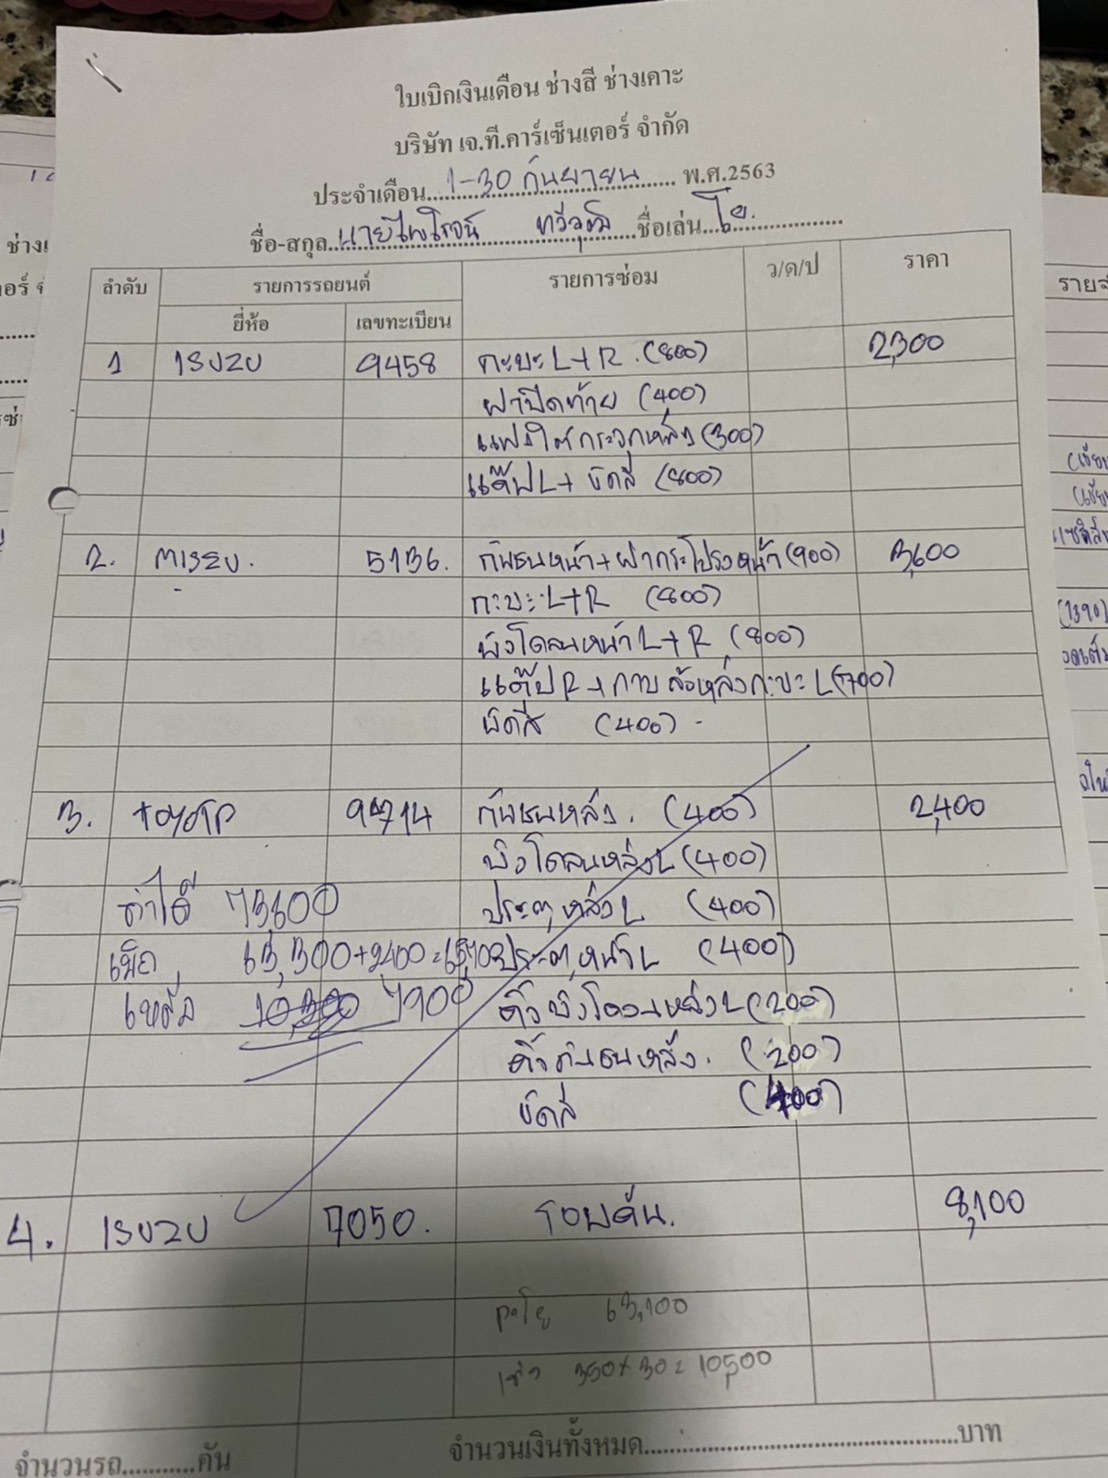 ใบเบิกเงินเดือน ช่างสี ช่างเคาะ
บริษัท เจ.ที.คาร์เซ็นเตอร์ จำกัด
ประจำเดือน 1-30 กันยายน พ.ศ.2563
ชื่อ-สกุล นายไพโรจน์ ชื่อเล่น โย.
ลำดับ รายการรถยนต์ รายการซ่อม ว/ด/ป ราคา
ยี่ห้อ เลขทะเบียน
1 ISUZU 9458 กะบะ L+R (800) 2,300
ฝาปิดท้าย (400)
แผงใต้กระจกหลัง (300)
แค๊ป L + ขัดสี (800)
2. MISZU. 5136. กันชนหน้า+ฝากระโปรงหน้า (900) 3,600
กะบะ L+R (800)
บังโคลนหน้า L+R (800)
แค๊ป R + กาบล้อหลังกะบะ L (700)
ขัดสี (400) -
3. TOYOTA 9714 กันชนหลัง. (400) 2,400
บังโคลนหลัง L (400)
ค่าได้ 73600 ประตูหลัง L (400)
เบิก 63,300+2,400= ประตูหน้า L (400)
เหลือ 7900 คิ้วบังโคลนหลัง L (200)
คิ้วกันชนหลัง. (200)
ขัดสี (400)
4. ISUZU 7050. รอบคัน. 8,100
63,100
350x30=10,500
จำนวนรถ...........คัน จำนวนเงินทั้งหมด..........บาท